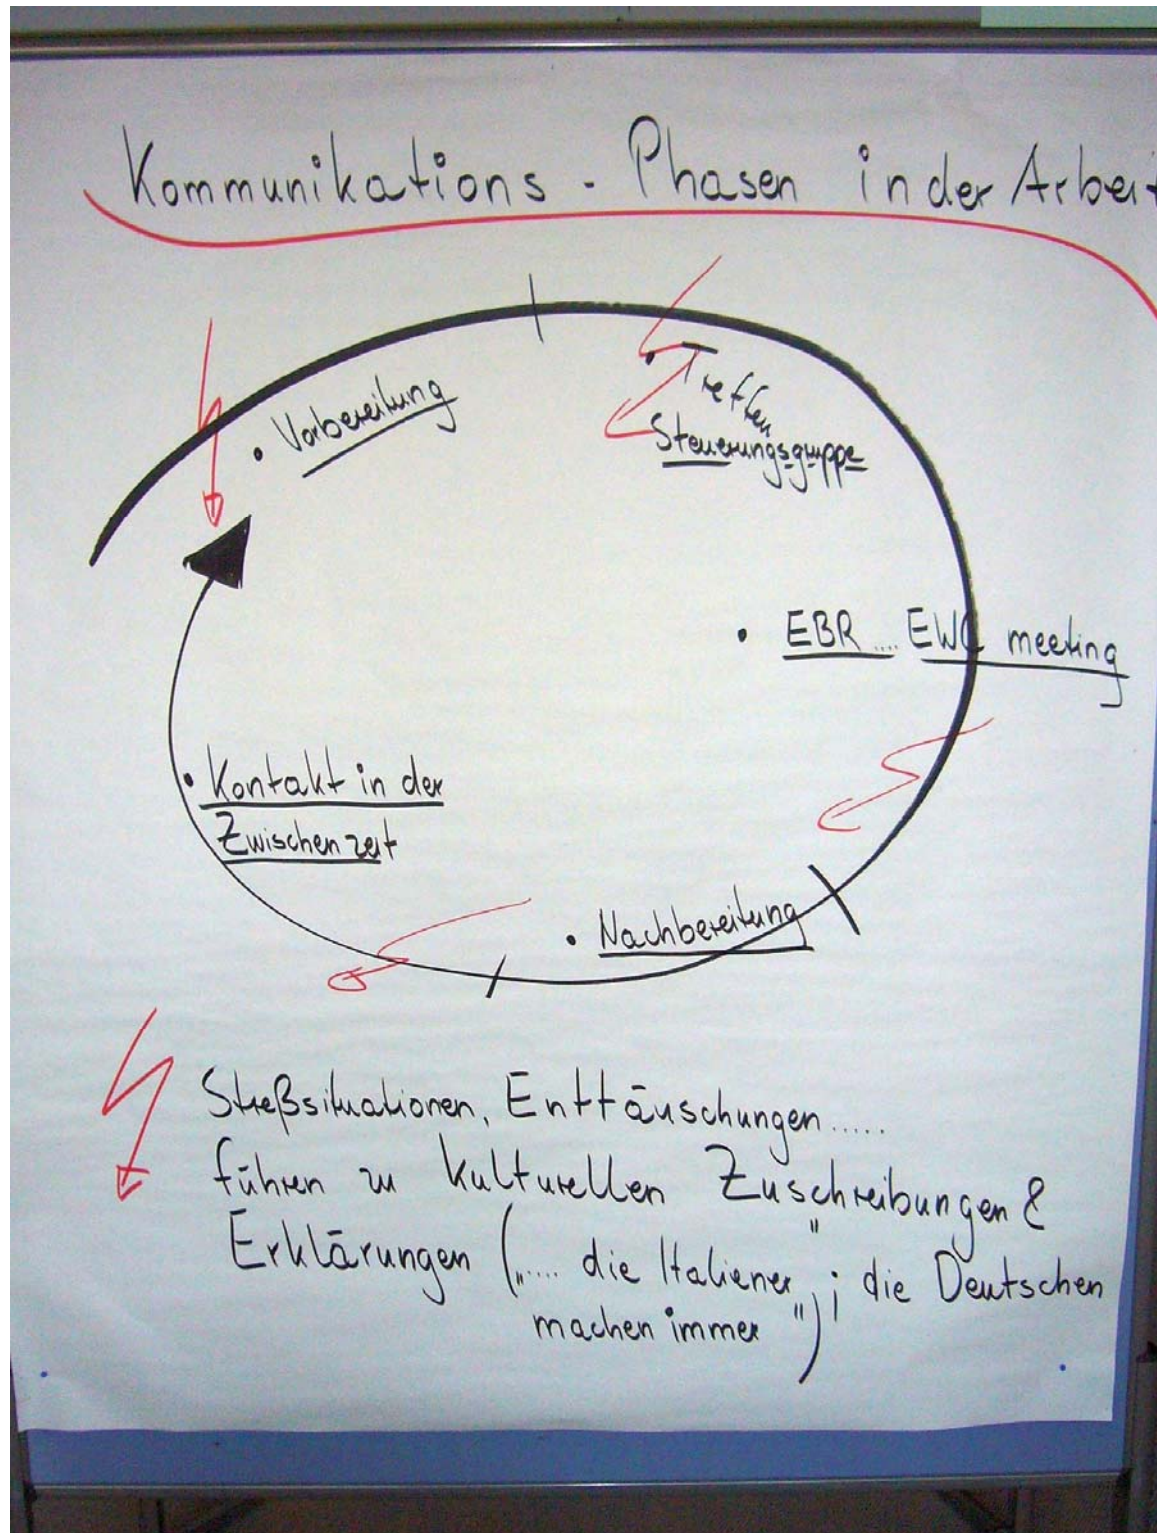 Kommunikations - Phasen in der Arbeit
• Vorbereitung
• Treffen
Steuerungsgruppe
• EBR .... EWC meeting
• Kontakt in der
Zwischenzeit
• Nachbereitung
Streßsituationen, Enttäuschungen.....
führen zu kulturellen Zuschreibungen &
Erklärungen („.... die Italiener"; die Deutschen
machen immer")